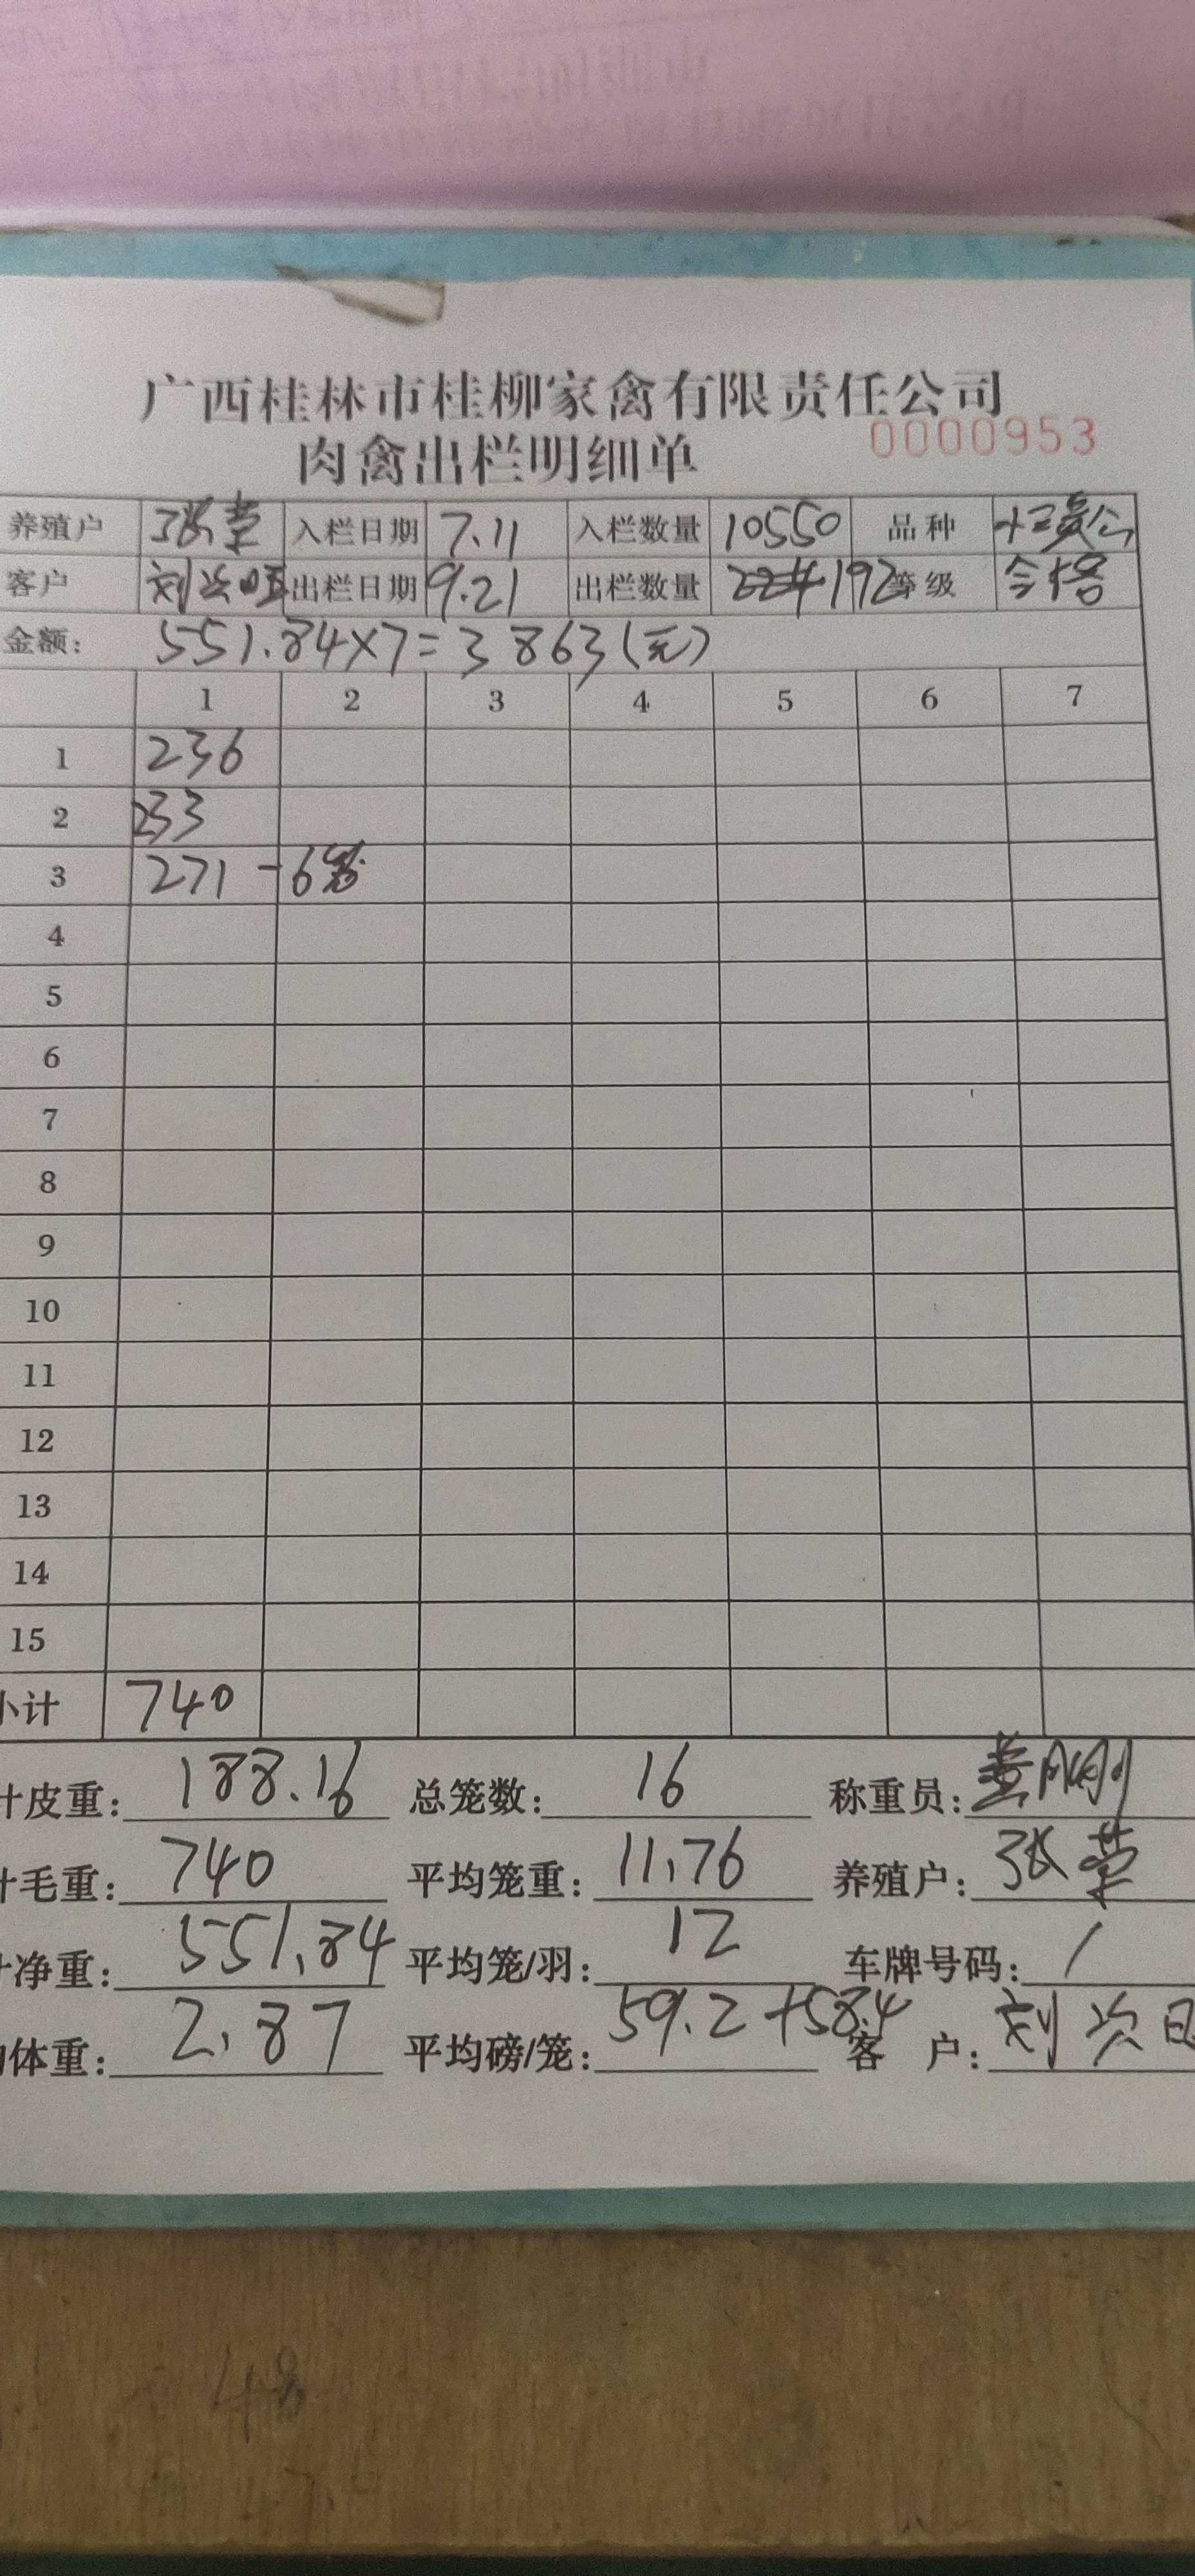 广西桂林市桂柳家禽有限责任公司
肉禽出栏明细单 0000953
养殖户 张草 入栏日期 7.11 入栏数量 10550 品种
客户 刘次 出栏日期 9.21 出栏数量 192 等级 合格
金额: 551.84×7=3863(元)
1 2 3 4 5 6 7
1 236
2 233
3 271 -6笼
4
5
6
7
8
9
10
11
12
13
14
15
小计 740
计皮重: 188.16 总笼数: 16 称重员:
计毛重: 740 平均笼重: 11.76 养殖户: 张草
计净重: 551.84 平均笼/羽: 12 车牌号码: /
体重: 2.87 平均磅/笼: 59.2+58.4 客 户: 刘次